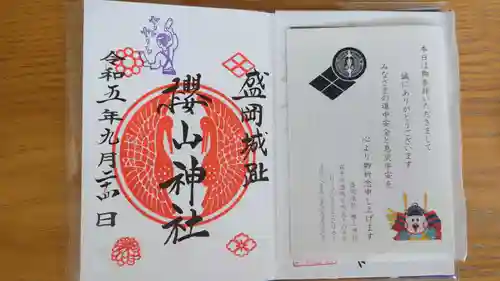 盛岡城趾
櫻山神社
令和五年九月二十四日
本日は御参拝いただきまして
誠にありがとうございます
みなさまの道中安全と息災平安を
心より御祈念申し上げます